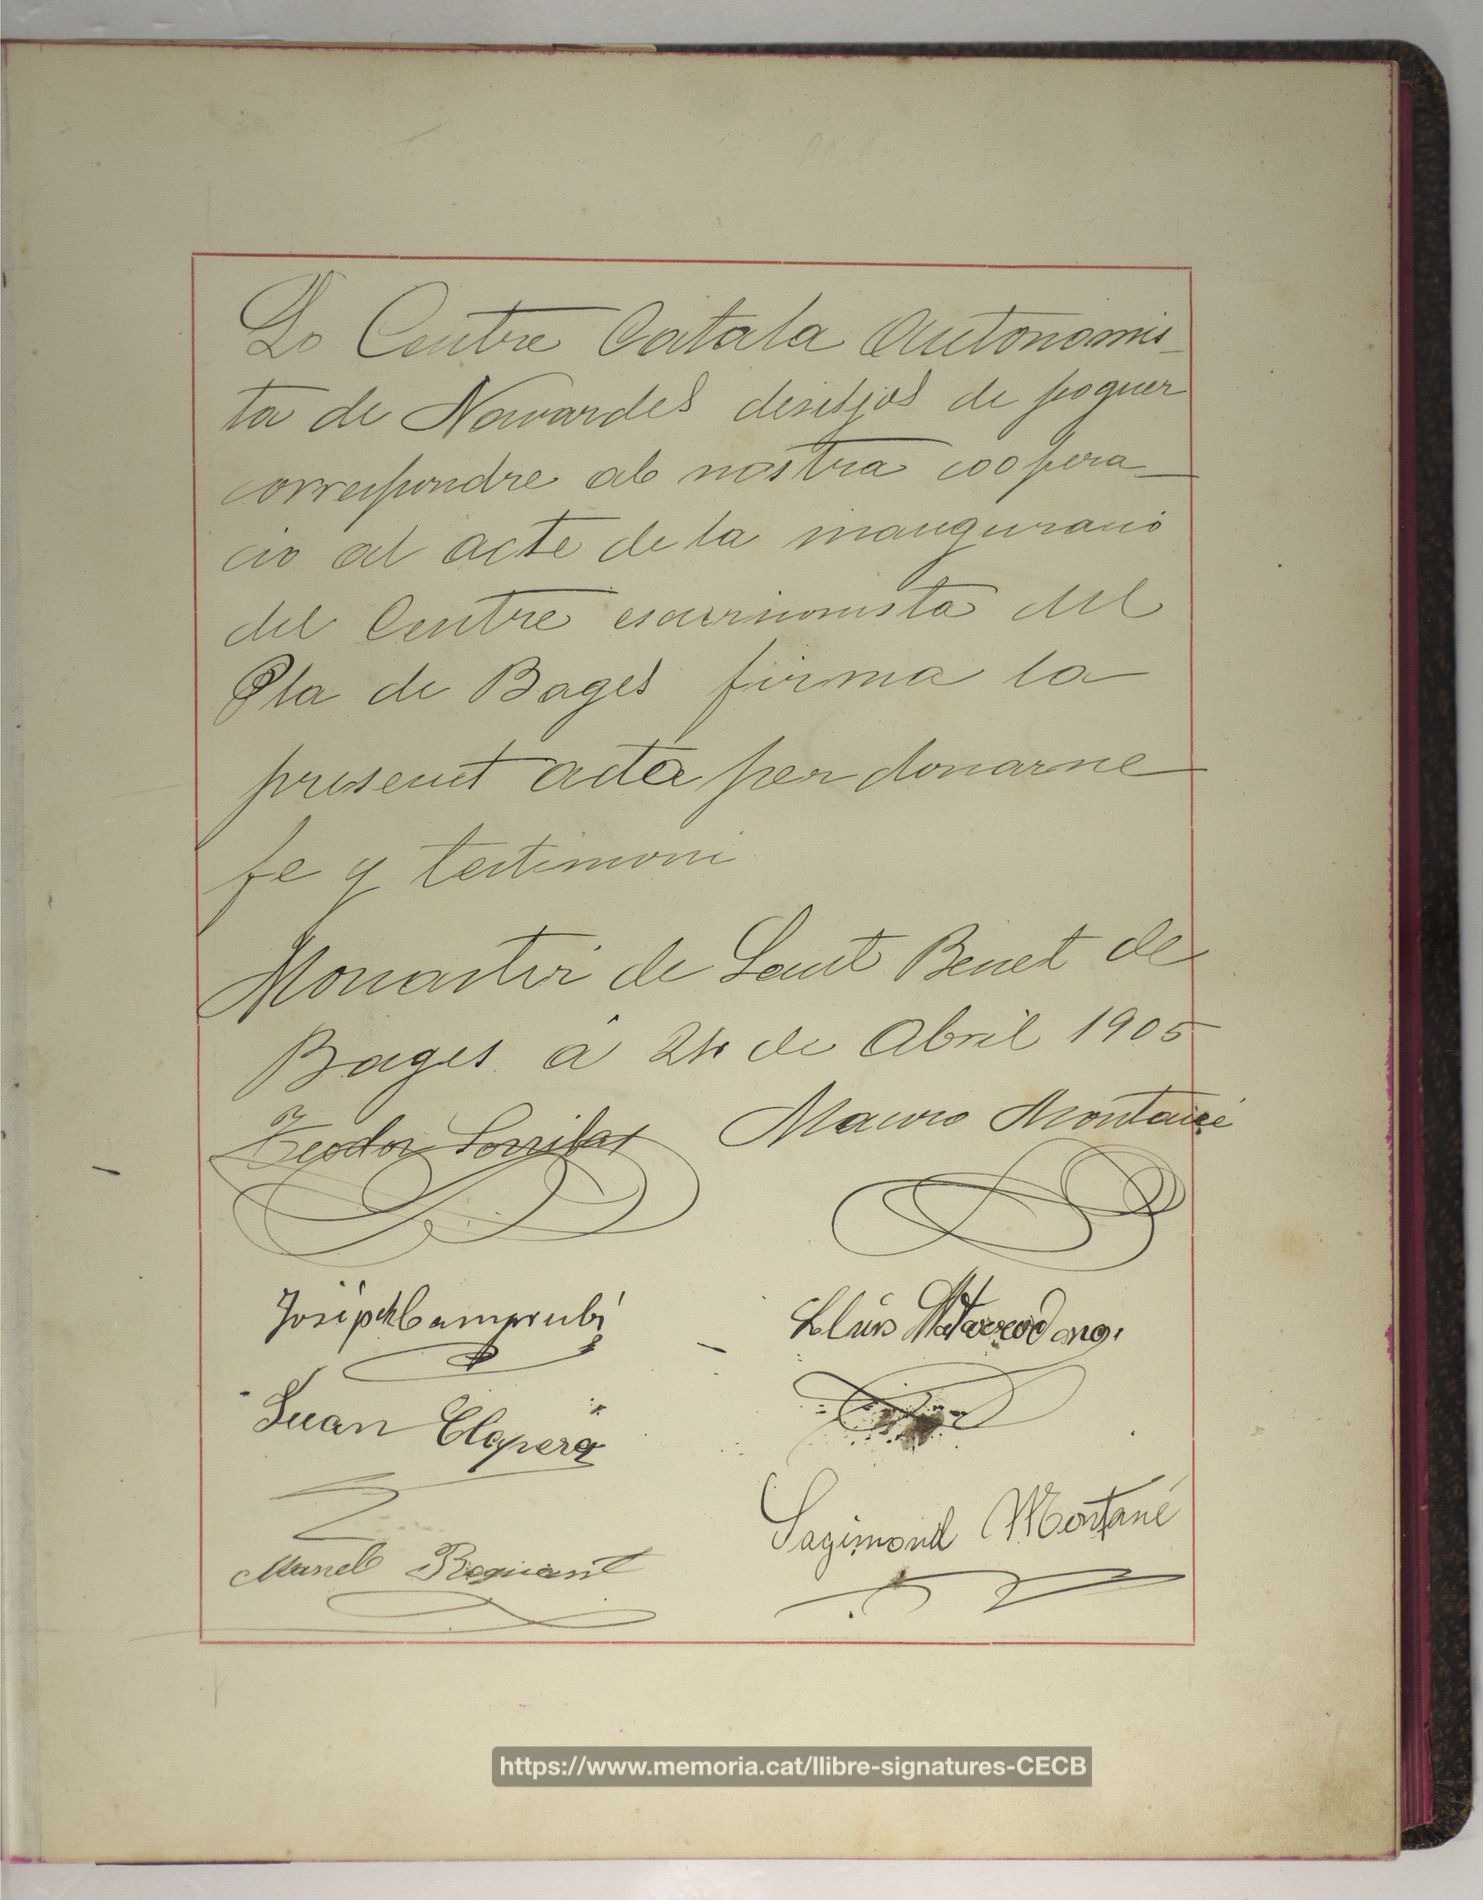 Lo Centre Catala Autonomis-
ta de Navarcles desitjos de poguer
correspondre ab nostra coopera-
cio al acte de la inauguració
del Centre escursionista del
Pla de Bages firma la
present acta per donarne
fe y testimoni
Monastir de Sant Benet de
Bages á 24 de Abril 1905
Teodor Mauro Montañé
Joseph Camprubí Lluis Matarrodona
Juan Clapera
Sagimond Montañé
Manel Reguant
https://www.memoria.cat/llibre-signatures-CECB